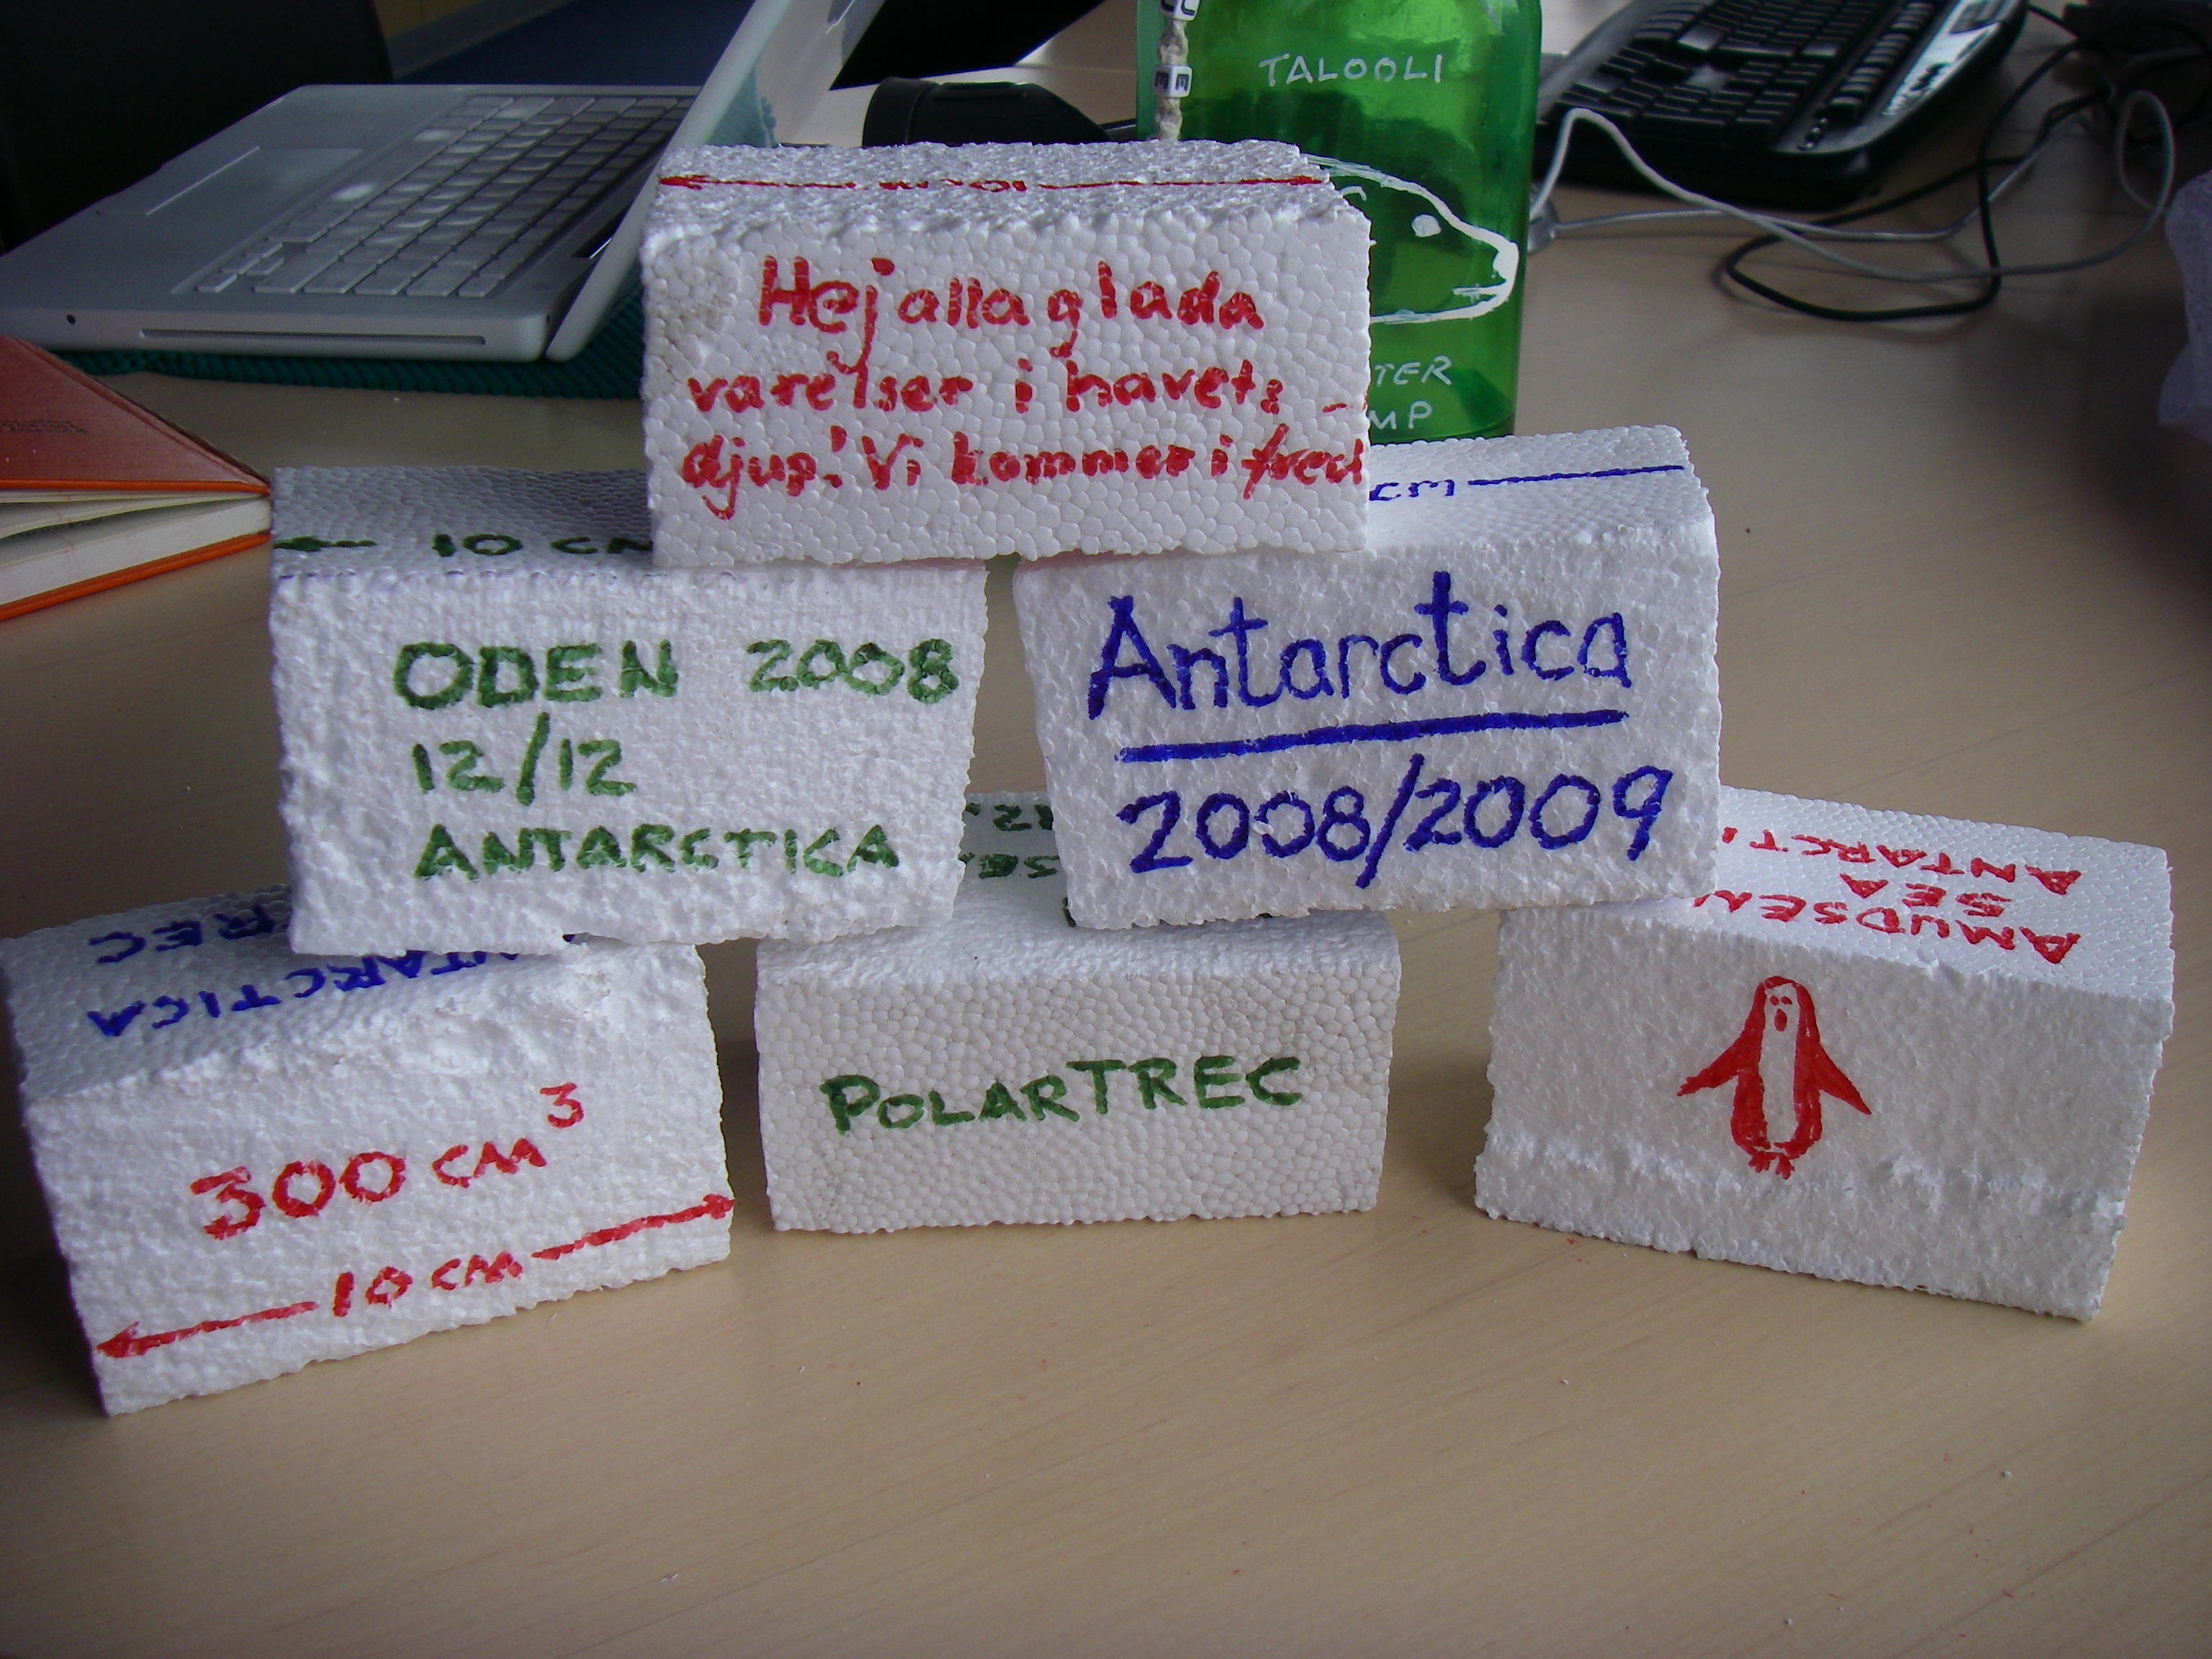 TALOOLI
TER
MP
10 cm
Hej alla glada
varelser i havets -
djup! Vi kommer i fred
10 CM
cm
ODEN 2008
12/12
ANTARCTICA
Antarctica
2008/2009
ANTARCTI
SEA
AMUDSEN
REC
NTARCTICA
300 CM³
10 CM
POLARTREC